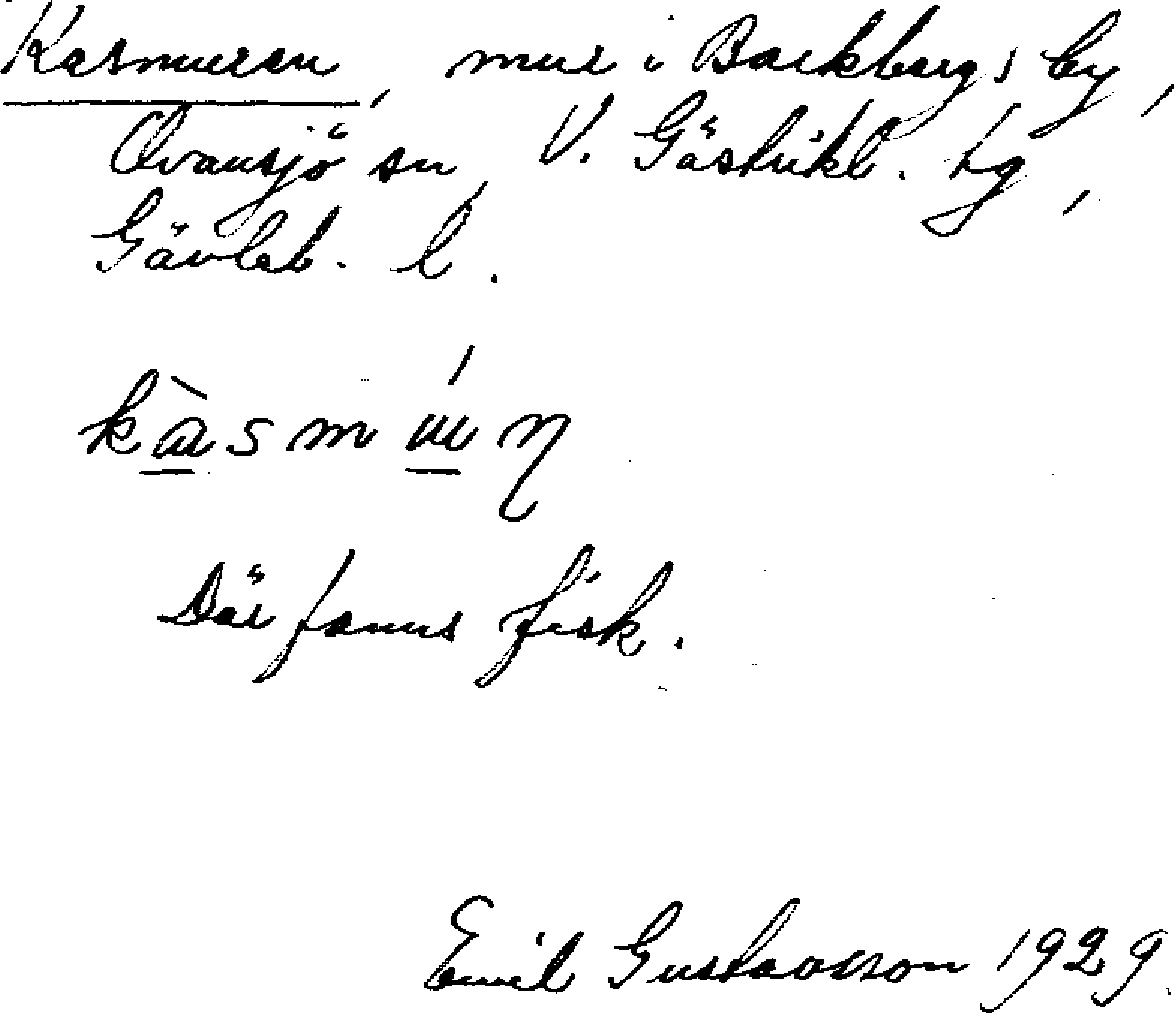 Kasmuren, mur i Backbergs by,
Ovansjö sn, V. Gästrikl. tg,
Gävleb. l.
kàsmúŋ
Där fanns fisk.
Emil Gustavsson 1929.